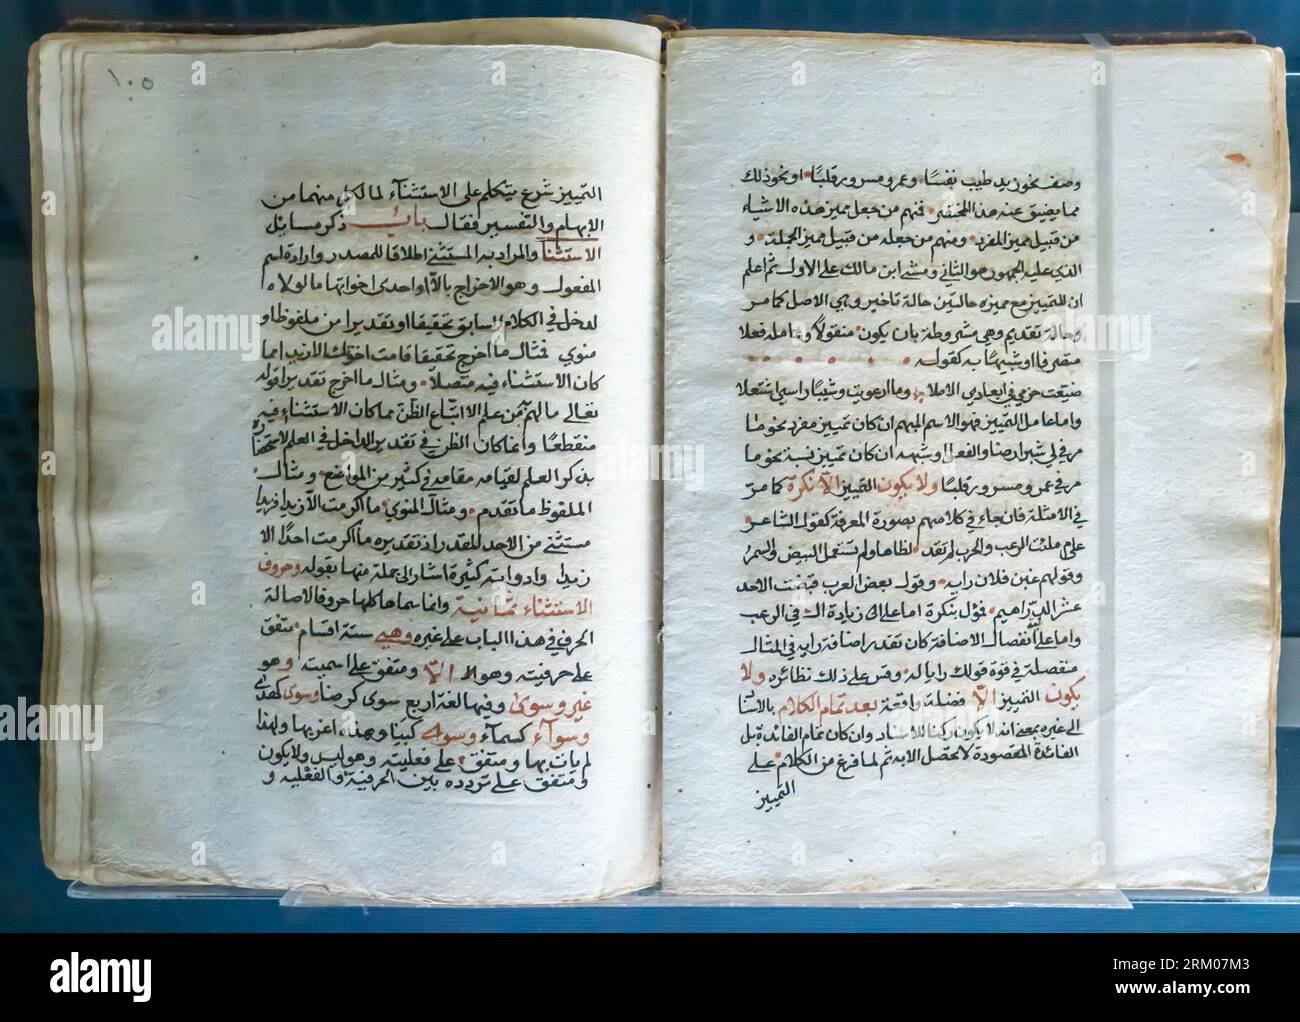 وصف نحو زيد طيب نفسًا وعمرو مسرور قلبًا او نحو ذلك
مما يضيق عنه هذا المختصر فمنهم من جعل مميز هذه الاشياء
من قبيل مميز المفرد ومنهم من جعله من قبيل مميز الجملة و
الذي عليه الجمهور هو الثاني ومشى ابن مالك على الاول ثم اعلم
ان للتمييز مع مميزه حالتين حالة تاخير وهي الاصل كما مر
وحالة تقديم وهي مشروطة بان يكون منقولًا وعامله فعلا
متصرفا او شبيهًا به كقوله
ضيعت حزمي في ابعادي الاملا وما ارعويت وشيبًا راسي اشتعلا
واما عامل التمييز فهو الاسم المبهم ان كان تمييز مفرد نحو ما
مر في لي شبر ارضا والفعل او شبهه ان كان تمييز نسبة نحو ما
مر في عمرو مسرور قلبًا ولا يكون التمييز الا نكرة كما مر
في الامثلة فان جاء في كلامهم بصورة المعرفة كقول الشاعر
علام ملئت الرعب والحرب لم تقد لظاها ولم تستعمل البيض والسمر
وقولهم غبن فلان رايه وقول بعض العرب قبضت الاحد
عشر الدراهم فؤل بنكرة اما على زيادة ال في الرعب
واما على انفصال الاضافة كان تقدير اضافة رايه في المثال
منفصلة في قوة قولك رايا له وقس على ذلك نظائره ولا
يكون التمييز الا فضلة واقعة بعد تمام الكلام بالاشا
الى غيره بمعنى انه لا يكون ركنا للاسناد وان كان تمام الفائدة بل
الفائدة المقصودة لا تحصل الا به ثم لما فرغ من الكلام على
التمييز
١٠٥
التمييز شرع يتكلم على الاستثناء لما لكل منهما من
الابهام والتفسير فقال باب ذكر مسايل
الاستثنا والمراد به المستثنى اطلاقا للمصدر وارادة اسم
المفعول وهو الاخراج بالا او احدى اخواتها ما لولاه
لدخل في الكلام السابق تحقيقا او تقديرا من ملفوظ او
منوي فمثال ما اخرج تحقيقا قامت اخوتك الا زيدا مما
كان الاستثناء فيه متصلًا ومثال ما اخرج تقديرا قوله
تعالى مالهم من علم الا اتباع الظن مما كان الاستثناء فيه
منقطعًا وانما كان الظن في تقدير الداخل في العلم لاستحضاره
بذكر العلم لقيامه مقامه في كثير من المواضع ومثال
الملفوظ ما تقدم ومثال المنوي ما اكرمت الا زيدا فزيدا
مستثنى من الاحد المقدر اذ تقديره ما اكرمت احدًا الا
زيدا وادواته كثيرة اشار الى جملة منها بقوله وحروف
الاستثناء ثمانية وانما سماها كلها حروفا لاصالة
الحرفي في هذا الباب على غيره وهي ستة اقسام متفق
على حرفيته وهو الا الا ومتفق على اسميته وهو
غير وسوى وفيها لغة اربع سوى كرضا وسوى كهدى
وسواء كسماء وسواء كبناء وهذه اغربها ولهذا
لم يات بها ومتفق على فعليته وهو ليس ولا يكون
ومتفق على تردده بين الحرفية والفعلية و
alamy
Image ID: 2RM07M3
www.alamy.com